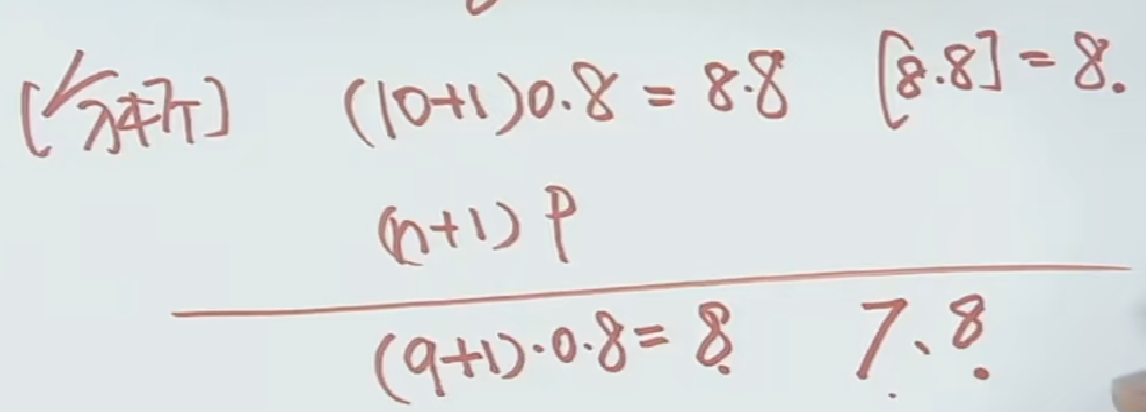 [分析] (10+1)0.8=8.8 [8.8]=8.
(n+1)P
(9+1)·0.8=8. 7、8.